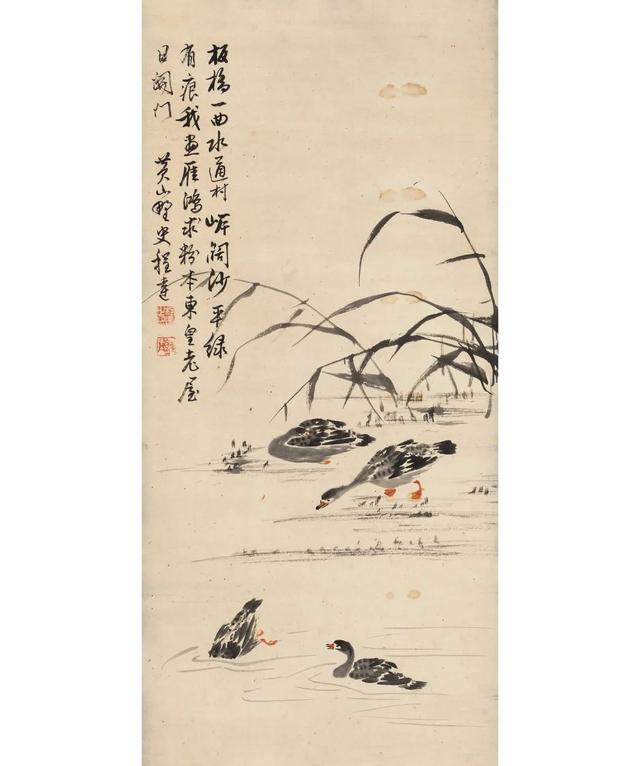 板橋一曲水通村岸闊沙平綠
有痕我畫雁鴻求粉本東皇老屋
日關門 黃山野史程達